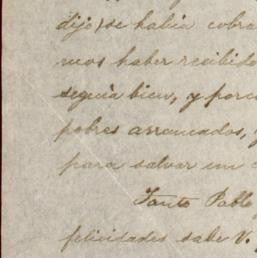 dijo) se había cobra
mos haber recibido
seguía bien, y porq
pobres arrancados, y
para salvar un c
Tanto Pablo
felicidades sabe V.